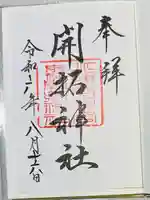 奉拝
開拓神社
令和六年八月廿六日